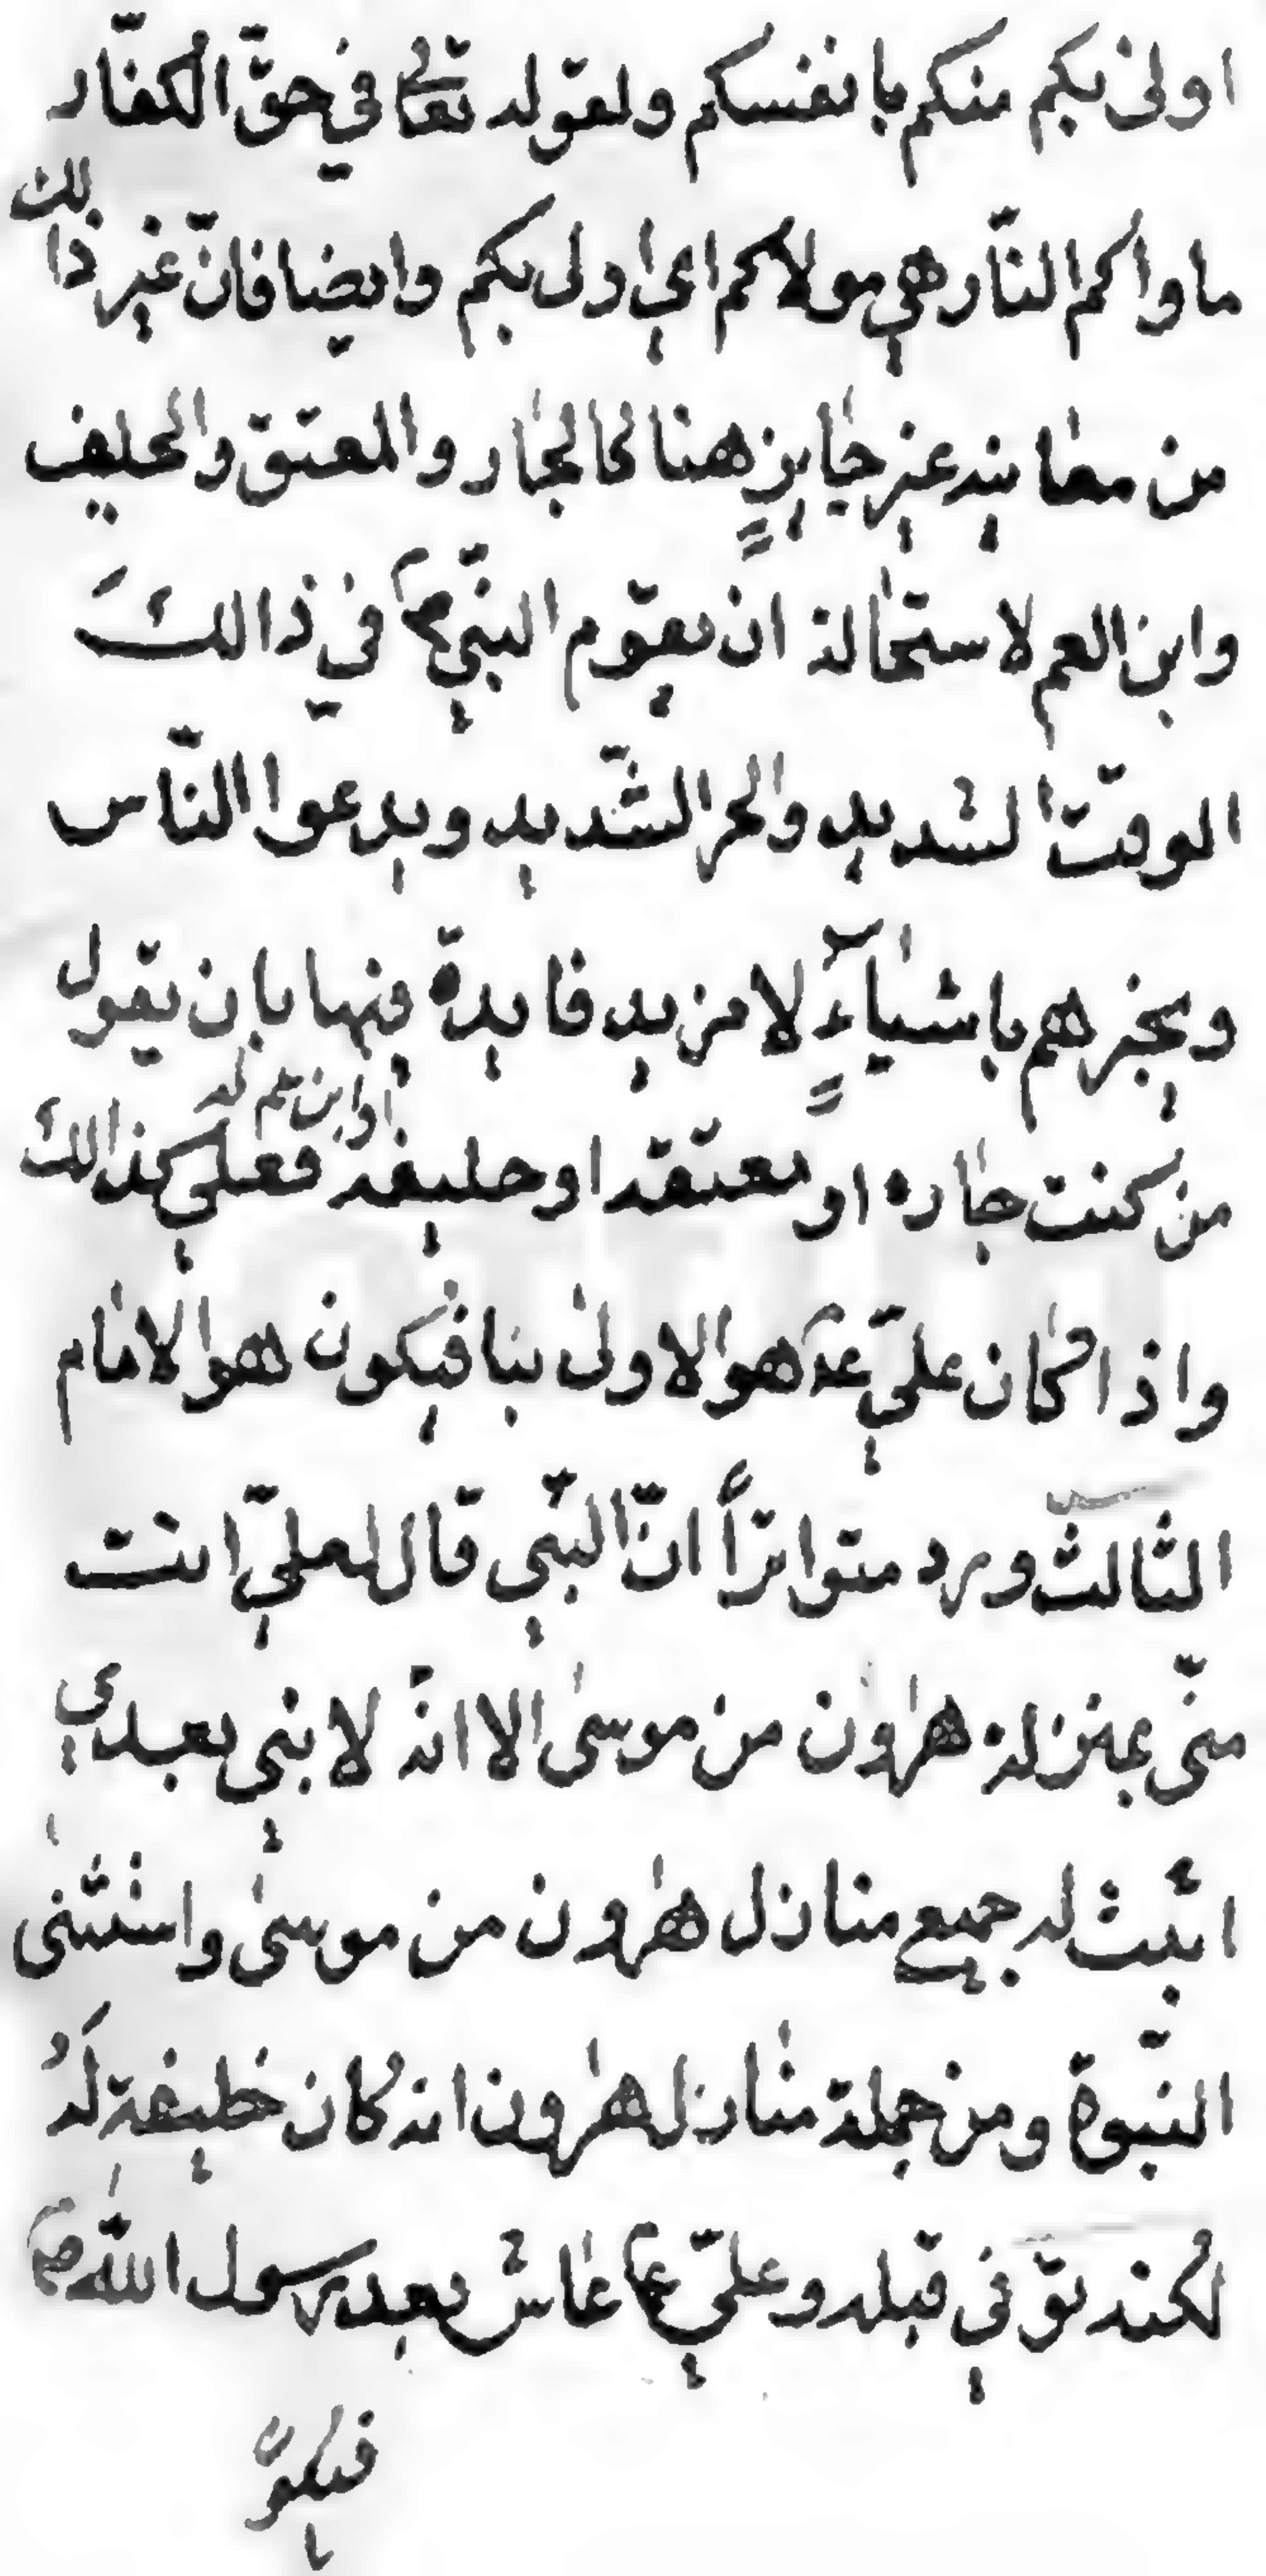 اولى بكم منكم بانفسكم ولقوله تعالى في حقّ الكفّار
ماواكم النّار هي مولاكم اي اولى بكم وايضا فانّ غير ذالك
من معانيه غير جايزٍ هنا كالجار والمعتق والحليف
وابن العم لاستحالة ان يقوم النّبي ص في ذالكَ
الوقت الشديد والحر الشّديد ويدعوا النّاس
ويخبرهم باشياۤءٍ لا مزيد فايدة فيها بان يقول
من كنت جاره او معتقه او حليفه او ابن عم له فعلي كذالكَ
واذا كان عليّ عم هو الاولى بنا فيكون هو الامام
الثالث ورد متواتراً انّ النّبي قال لعليّ انت
منّي بمنزلة هٰرون من موسى الا انّه لا نبي بعدي
اثبت له جميع منازل هٰرون من موسىٰ واستثنى
النّبوة ومن جملة منازل هٰرون انه كان خليفة لَهُ
لكنه توّفي قبله وعليّ ع عاش بعد رسول اللّه ص
فيكون